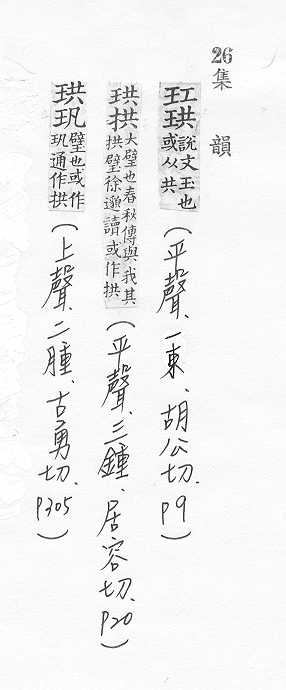 26 集韻
玒珙 說文玉也或从共 (平聲、一東、胡公切、p9)
珙拱 大璧也春秋傳與我其拱璧徐邈讀或作拱 (平聲、三鍾、居容切、p20)
珙 璧也或作 通作拱 (上聲、二腫、古勇切、p305)